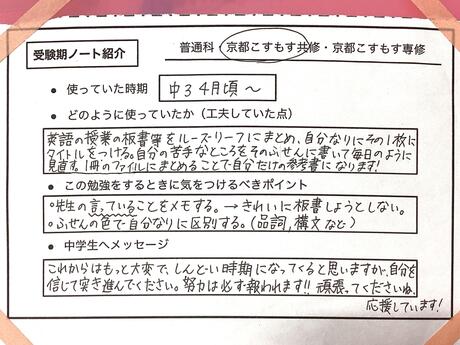 受験期ノート紹介
普通科・京都こすもす共修・京都こすもす専修
● 使っていた時期
中3 4月頃 ～
● どのように使っていたか(工夫していた点)
英語の授業の板書等をルーズリーフにまとめ、自分なりにその1枚に
タイトルをつける。自分の苦手なところをそのふせんに書いて毎日のように
見直す。1冊のファイルにまとめることで自分だけの参考書になります!
● この勉強をするときに気をつけるべきポイント
・先生の言っていることをメモする。→きれいに板書しようとしない。
・ふせんの色で自分なりに区別する。(品詞,構文など)
● 中学生へメッセージ
これからはもっと大変で、しんどい時期になってくると思いますが、自分を
信じて突き進んでください。努力は必ず報われます!!頑張ってくださいね。
応援しています!